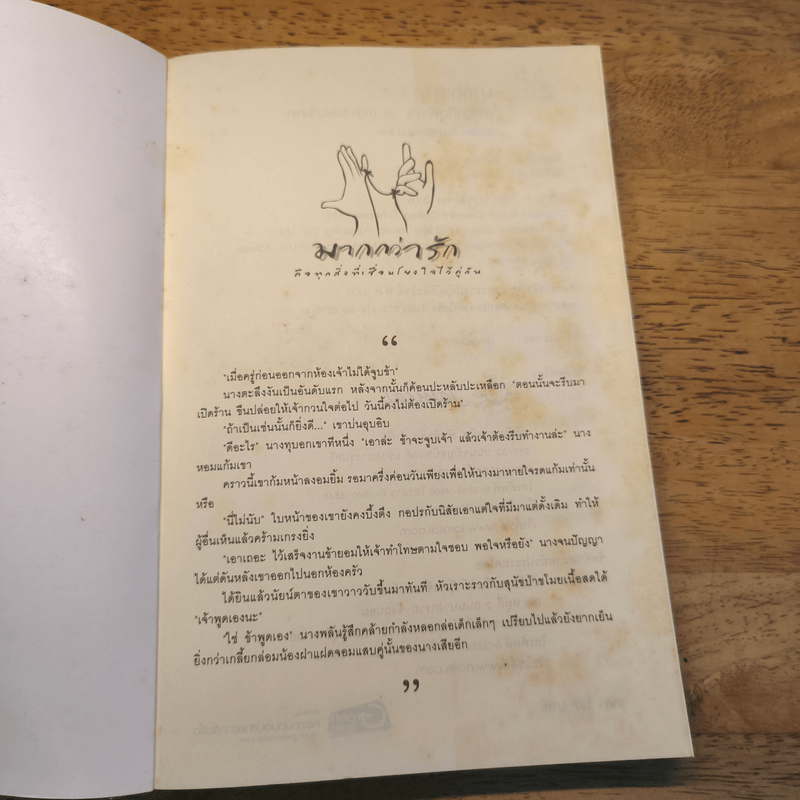 มากกว่ารัก
คือทุกสิ่งที่เชื่อมโยงใจไว้คู่กัน
“
"เมื่อครู่ก่อนออกจากห้องเจ้าไม่ได้จูบข้า"
นางตะลึงงันเป็นอันดับแรก หลังจากนั้นก็ค้อนปะหลับปะเหลือก "ตอนนั้นจะรีบมา
เปิดร้าน ขืนปล่อยให้เจ้ากวนใจต่อไป วันนี้คงไม่ต้องเปิดร้าน"
"ถ้าเป็นเช่นนั้นก็ยิ่งดี..." เขาบ่นอุบอิบ
"ดีอะไร" นางทุบอกเขาทีหนึ่ง "เอาล่ะ ข้าจะจูบเจ้า แล้วเจ้าต้องรีบทำงานล่ะ" นาง
หอมแก้มเขา
คราวนี้เขาก้มหน้าลงอมยิ้ม รอมาครึ่งค่อนวันเพียงเพื่อให้นางมาหายใจรดแก้มเท่านั้น
หรือ
"นี่ไม่นับ" ใบหน้าของเขายังคงบึ้งตึง กอปรกับนิสัยเอาแต่ใจที่มีมาแต่ดั้งเดิม ทำให้
ผู้อื่นเห็นแล้วคร้ามเกรงยิ่ง
"เอาเถอะ ไว้เสร็จงานข้ายอมให้เจ้าทำโทษตามใจชอบ พอใจหรือยัง" นางจนปัญญา
ได้แต่ดันหลังเขาออกไปนอกห้องครัว
ได้ยินแล้วนัยน์ตาของเขาวาววับขึ้นมาทันที หัวเราะราวกับสุนัขป่าขโมยเนื้อสดได้
"เจ้าพูดเองนะ"
"ใช่ ข้าพูดเอง" นางพลันรู้สึกคล้ายกำลังหลอกล่อเด็กเล็กๆ เปรียบไปแล้วยังยากเย็น
ยิ่งกว่าเกลี้ยกล่อมน้องฝาแฝดจอมแสบคู่นั้นของนางเสียอีก
”